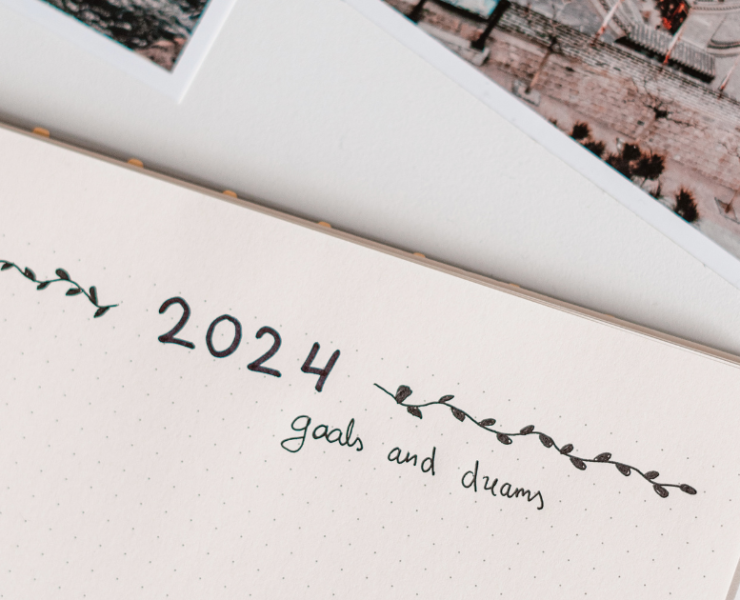 2024
goals and dreams